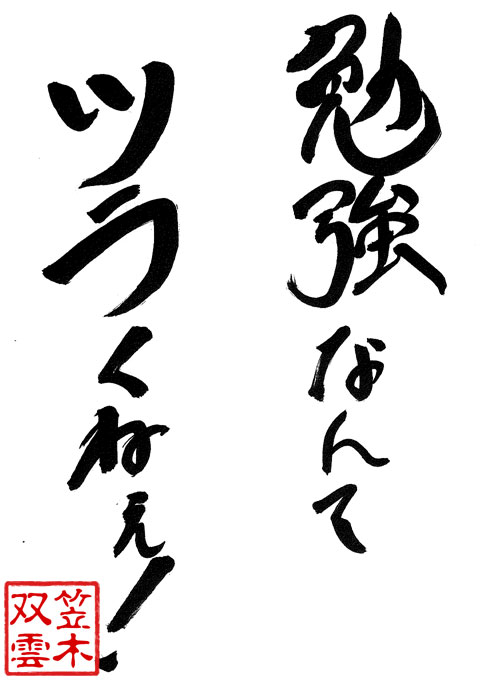 勉強なんて
ツラくねぇ!
笠木
双雲